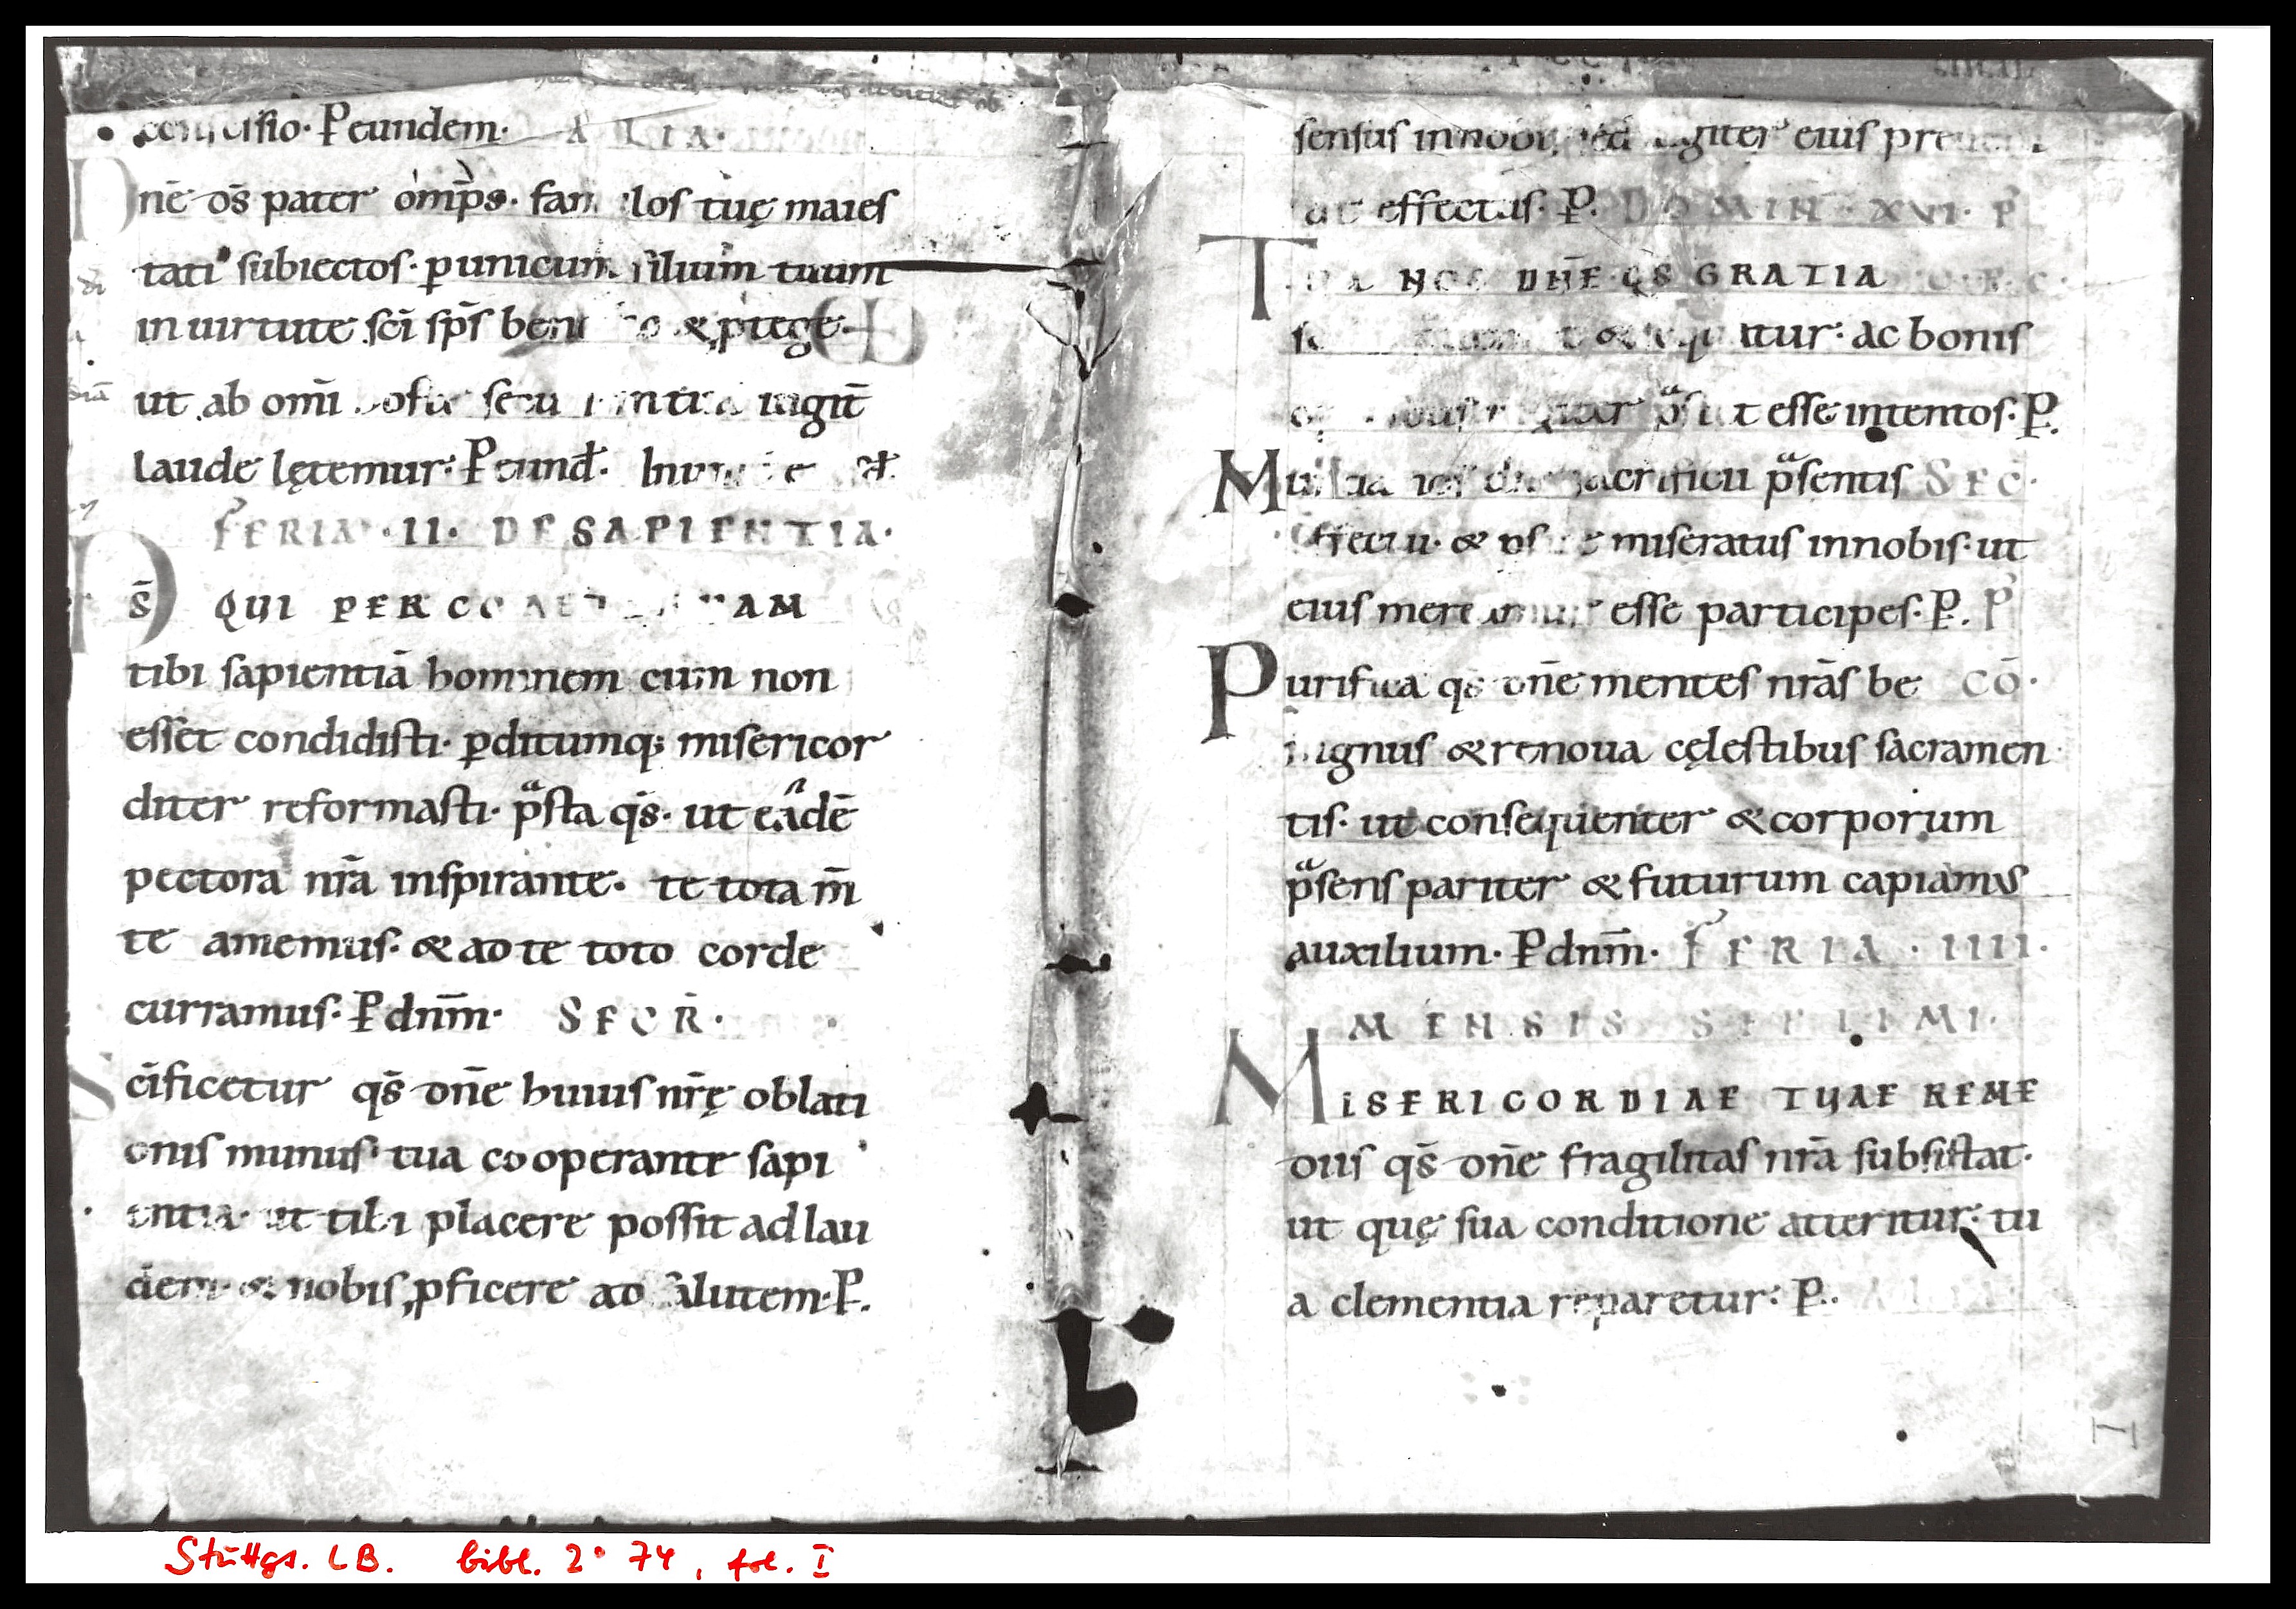 confessio. P eundem. ALIA.
Dnē os̄ pater omp̄s. famulos tuę maies
tati subiectos. ꝑ unicum filium tuum
in uirtute sc̄i sp̄s bene & ꝓtege.
ut ab om̄i secu iugit̄
laude lętemur. P eund̄.
FERIA .II. DE SAPIENTIA.
Ds̄ QUI PER COAET NAM
tibi sapientiā hominem cum non
esset condidisti. ꝑditumq; misericor
diter reformasti. p̄sta qs̄. ut eadē
pectora nr̄a inspirante. te tota m̄
te amemus. & ad te toto corde
curramus. P dnm̄. SECR̄.
Sc̄ificetur qs̄ dn̄e huius nr̄ę oblati
onis munus. tua cooperante sapi
entia. ut tibi placere possit ad lau
dem. & nobis ꝓficere ad salutem. P.
sensus in nobis sed iugiter eius preueni
at effectus. P. DOMIN̄. XVI. P̄
TUA NOS DN̄E QS GRATIA
& sequatur. ac bonis
p̄s t esse intentos. P.
M sacrificii p̄sentis SEC̄.
effectu. & miseratus in nobis. ut
eius mereamur esse participes. P. P̄
Purifica qs̄ dn̄e mentes nr̄as be CŌ.
nignus & renoua cęlestibus sacramen
tis. ut consequenter & corporum
p̄sens pariter & futurum capiamus
auxilium. P dnm̄. FERIA .IIII.
MENSIS SEPTIMI.
MISERICORDIAE TUAE REME
diis qs̄ dn̄e fragilitas nr̄a subsistat.
ut quę sua conditione atteritur. tu
a clementia reparetur. P.
I
Stuttgt. LB. bibl. 2° 74, fol. I